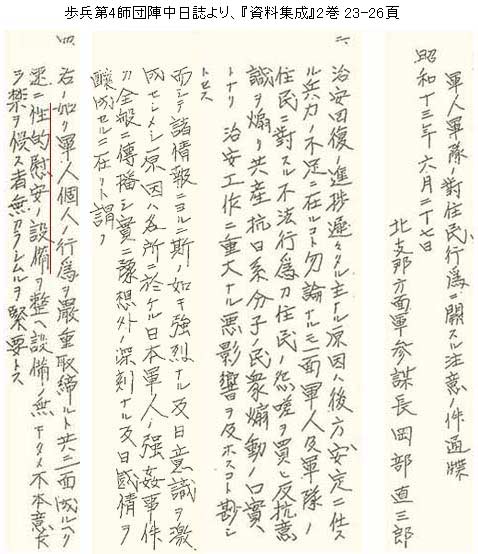 歩兵第4師団陣中日誌より、『資料集成』2巻 23-26頁
軍人軍隊ノ対住民行為ニ関スル注意ノ件通牒
昭和十三年六月二十七日
北支那方面軍参謀長 岡部直三郎
二、
治安回復ノ進捗遅々タル主ナル原因ハ後方安定ニ任ス
ル兵力ノ不足ニ在ルコト勿論ナルモ一面軍人及軍隊ノ
住民ニ対スル不法行為カ住民ノ怨嗟ヲ買ヒ反抗意
識ヲ煽リ共産抗日系分子ノ民衆煽動ノ口実
トナリ治安工作ニ重大ナル悪影響ヲ及ホスコト尠シ
トセス
而シテ諸情報ニヨルニ斯ノ如キ強烈ナル反日意識ヲ激
成セシメシ原因ハ各所ニ於ケル日本軍人ノ強姦事件
カ全般ニ伝播シ実ニ予想外ノ深刻ナル反日感情ヲ
醸成セルニ在リト謂フ
四、
右ノ如ク軍人個人ノ行為ヲ厳重取締ルト共ニ一面成ルヘク
速ニ性的慰安ノ設備ヲ整ヘ設備ノ無キタメ不本意乍
ラ禁ヲ侵ス者無カラシムルヲ緊要トス